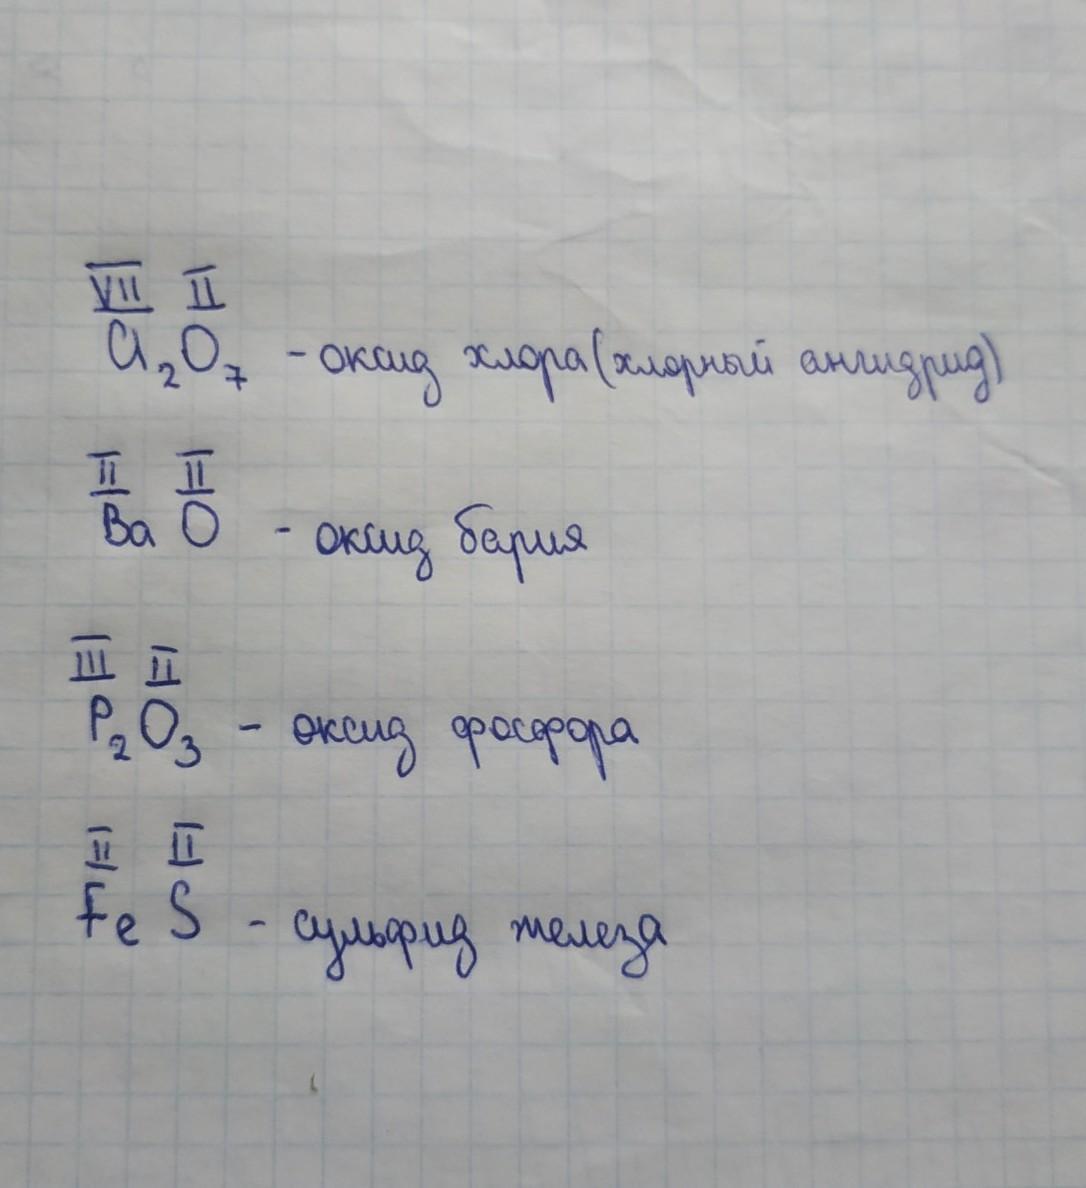 VII II
Cl₂O₇ - оксид хлора (хлорный ангидрид)
II II
Ba O - оксид бария
III II
P₂O₃ - оксид фосфора
II II
Fe S - сульфид железа